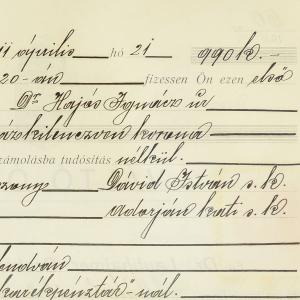 11 április hó 21 990 k.
20-án fizessen Ön ezen első
Dr Hajós Ignácz úr
ázkilenczven korona
zámolásba tudósítás nélkül.
Dávid István s. k.
Adorján Kati s. k.
lendván
karékpénztár-nál.